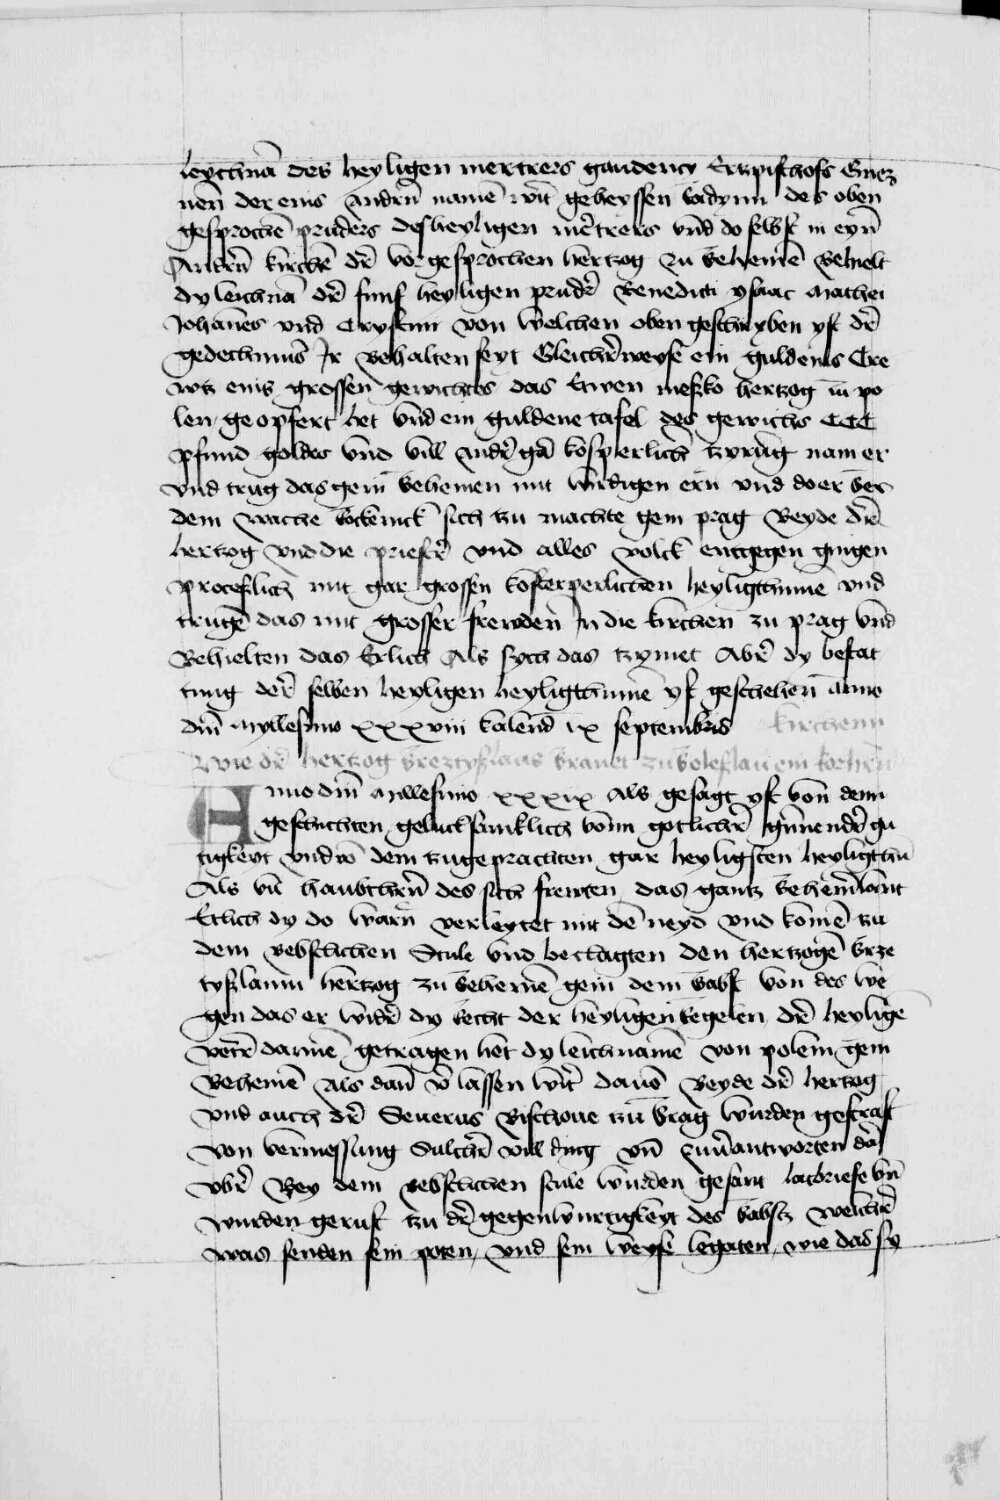 leychnā des heyligen mertrers gaudency Ertzpischofs Gnez
nen der eins Andrn̄ namē wirt geheyssen radynn des oben
gesprochē pruders des heyligen mr̄trers vnd do selbst in eyn̄
Andrn̄ kirchē dr̄ vorgesprochen hertzog zu behemē behielt
dy leichnā dr̄ funf heyligen prudr̄ Benedicti ysaac mathei
Johannes vnd Cristini von welchen oben geschryben yst dr̄
gedechtnus Ir behalten seyt Gleichr̄weyse ein guldens Cre
wtz eins grossen gewichtes das Etwen mesko hertzog in po
len geopfert het vnd ein guldene tafel des gewichs CCC
pfund goldes vnd vill andr̄ gā kosperlich tzyrūg nam er
vnd trug das gein behemen mit wirdigen ern̄ vnd do er ber
dem wache Rockenick sich tzu machte gein prag Beyde dr̄
hertzog vnd die priestr̄ vnd alles volck entgegen gingen
processlich mit gar grossen kosperperlichen heyligthume vnd
trugē das mit grosser frewden In die kirchen zu prag vnd
Behielten das Erlich Als sych das tzymet Abr̄ dy bestat
tung derr̄ selben heyligen heyligthumē yst geschehen anno
dm̄ Myllesimo xxxviii kalend̄ ix septembris kirchenn
Wie dr̄ hertzog Breztyslaus bauet zu boleslau ein kirchen
Anno dm̄ Millesimo xxxix Als gesagt yst von denn
geschichten gelucksamklich vonn gotlichr̄ gunendr̄ gu
tigkeyt vnd vō dem zugeprachten gar heyligsten heyligthū
Als vil haubthern̄ des sich frewten das gantz behemr̄lant
Etlich dy do warn̄ verleytet mit dē neyd vnd komē tzu
dem bebstlichen Stule vnd beclagten den hertzogē brze
tyslaum hertzog zu behemē gein dem babst von des we
gen das er widr̄ dy recht der heyligen regelen dr̄ heylige
vetr̄ darinē getragen het dy leichnamē von polem gein
Behemē Als dan̄ v̄lassen wirt dauō Beyde dr̄ hertzog
vnd auch dr̄ Seuerus Bischoue tzu brag wurden gestraft
von vermessung Sulchr̄ vill ding vn̄ zuu̇antworten dar
vbr̄ Bey dem bebstlichen stule wurden gesant ladbriefe vn̄
wurden geruft tzu dr̄ gegenwurtigkeyt des babstz welchr̄
was senden sein poten vnd sein weyse legaten wie das sy